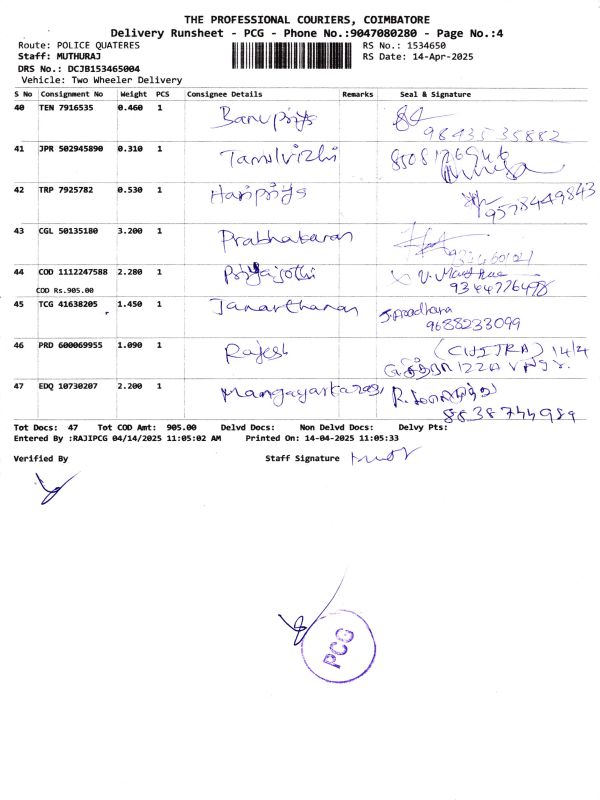 THE PROFESSIONAL COURIERS, COIMBATORE
Delivery Runsheet - PCG - Phone No.:9047080280 - Page No.:4
Route: POLICE QUATERES RS No.: 1534650
Staff: MUTHURAJ RS Date: 14-Apr-2025
DRS No.: DCJB153465004
Vehicle: Two Wheeler Delivery
S No Consignment No Weight PCS Consignee Details Remarks Seal & Signature
40 TEN 7916535 0.460 1 Banupriya
9843535882
41 JPR 502945890 0.310 1 Tamilvizhi
42 TRP 7925782 0.530 1 Haripriya
9578449843
43 CGL 50135180 3.200 1 Prabhakaran
44 COD 1112247588 2.280 1 Priyajothi
COD Rs.905.00 9344776498
45 TCG 41638205 1.450 1 Janarthanan
9688233099
46 PRD 600069955 1.090 1 Rajesh (CHITRA) 14/4
47 EDQ 10730207 2.200 1 Mangayarkarasi R.
8638744989
Tot Docs: 47 Tot COD Amt: 905.00 Delvd Docs: Non Delvd Docs: Delvy Pts:
Entered By :RAJIPCG 04/14/2025 11:05:02 AM Printed On: 14-04-2025 11:05:33
Verified By Staff Signature
PCG